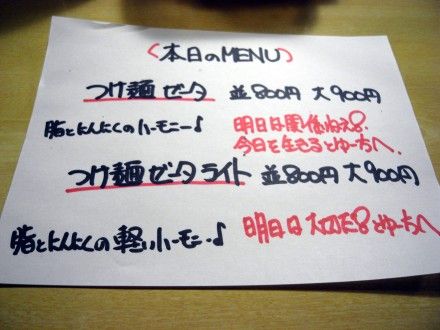 〈本日のMENU〉
つけ麺ゼータ 並800円 大900円
脂とにんにくのハーモニー♪
明日は関係ねえ8.
今日を生きるとゆー方へ.
つけ麺ゼータライト 並800円 大900円
脂とにんにくの軽いハーモニー♪
明日は大切だ8とゆー方へ